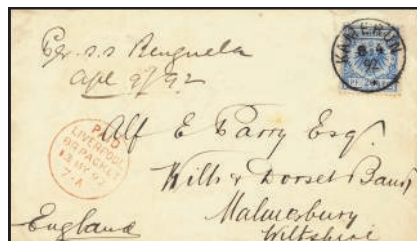 Per s.s Benguela
Apl 9/92
KAMERUN
8 4
92
PAID
LIVERPOOL
BR PACKET
13 MY 92
7 A
Alf E Parry Esq.
Wilts & Dorset Bank
Malmesbury
Wiltshire
England